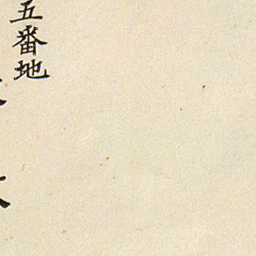 五番地